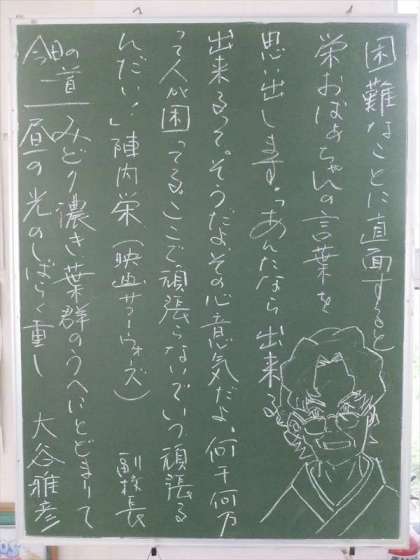 困難なことに直面すると
栄おばあちゃんの言葉を
思い出します。「あんたなら出来る
出来るって。そうだよ、その心意気だよ。何千何万
って人が困ってる。ここで頑張らないでいつ頑張る
んだい！」陣内栄（映画サマーウォーズ） 副校長
今日の一首 みどり濃き葉群のうへにとどまりて
昼の光のしばらく重し 大谷雅彦